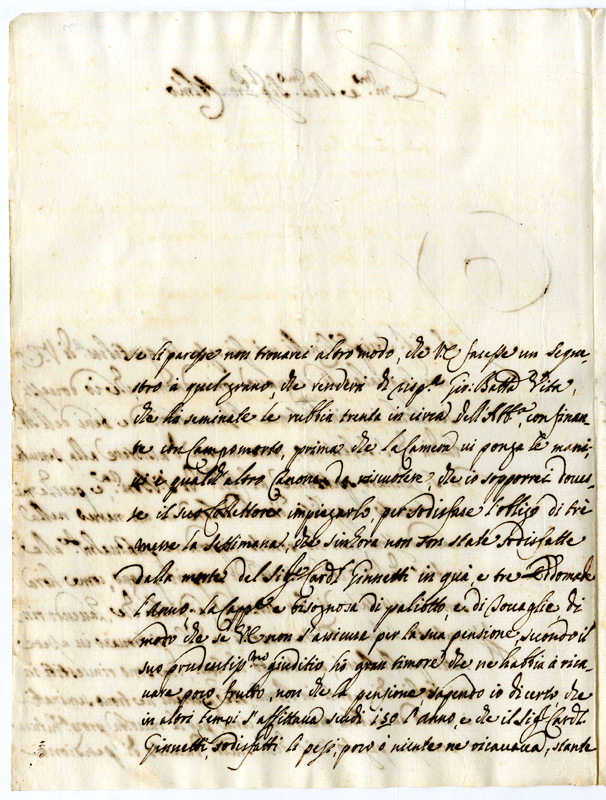 se li paresse non trouarei altro modo, che VE facesse un seque-
stro à quel grano, che renderà di risp.ª Gio: Batta Vita,
che hà seminate le rubbia trenta in circa dell'Abb.ª, confinan-
te con Campomorto, prima che la Camera ui ponga le mani,
ui è qualch' altro Canone da riscuotere, che io supporrei douer-
se il suo Collettore impiegarlo, per sodisfare l'obligo di trè
messe la settimana, che sin hora non son state sodisfatte
dalla morte del Sig.r Card.l Ginnetti in quà, e tre
l'anno. La Capp.ª è bisognosa di paliotto, e di Touaglie, di
modo che se VE non s'assicura per la sua pensione, secondo il
suo prudentiss.mo giuditio, hò gran timore che ne habbia à rica-
uare poco frutto, non che la pensione, sapendo io di certo, che
in altri tempi s'affittaua scudi 130 l'anno, e che il Sig.r Card.l
Ginnetti, sodisfatti li pesi, poco ò niente ne ricauaua, stante